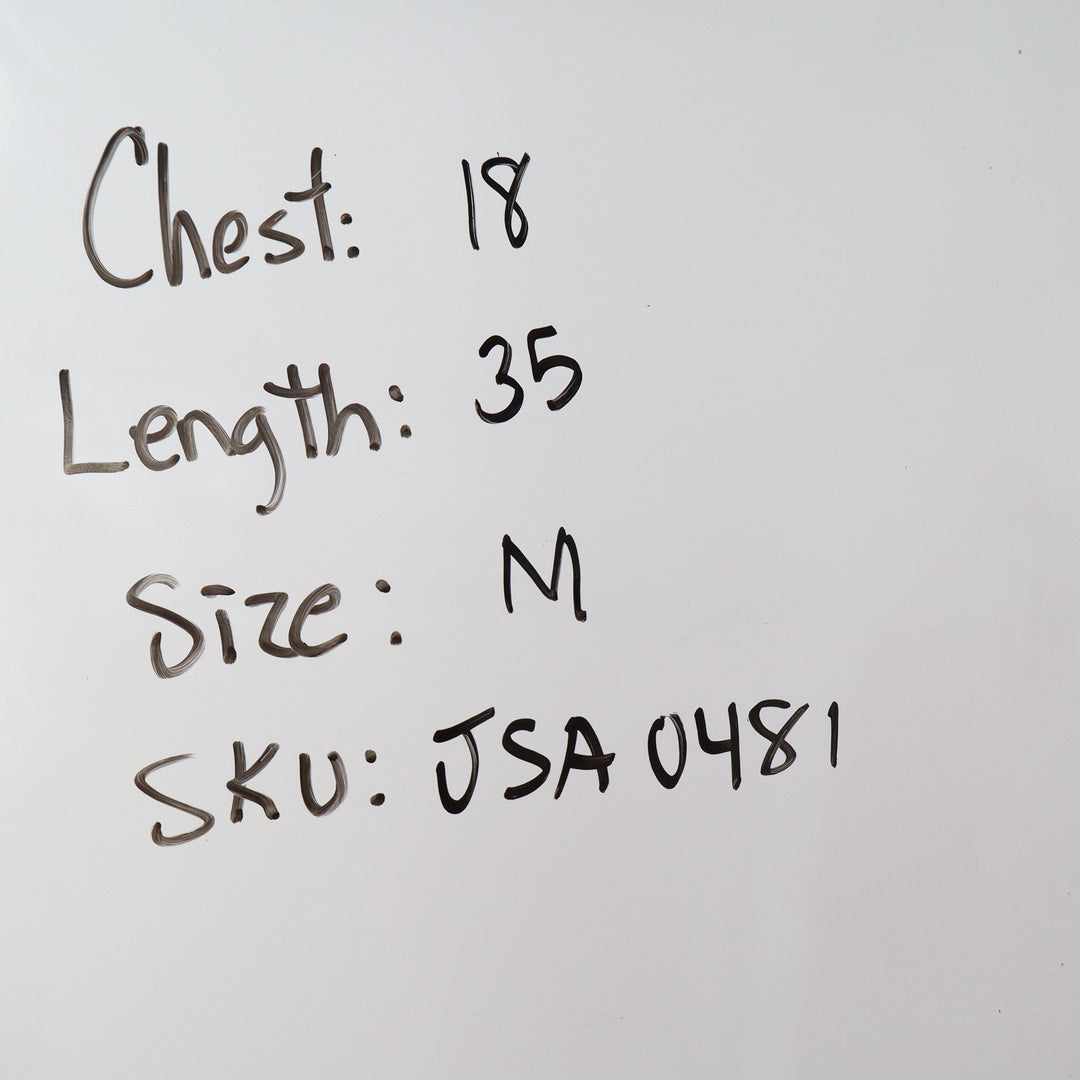 Chest: 18
Length: 35
Size: M
SKU: JSA 0481